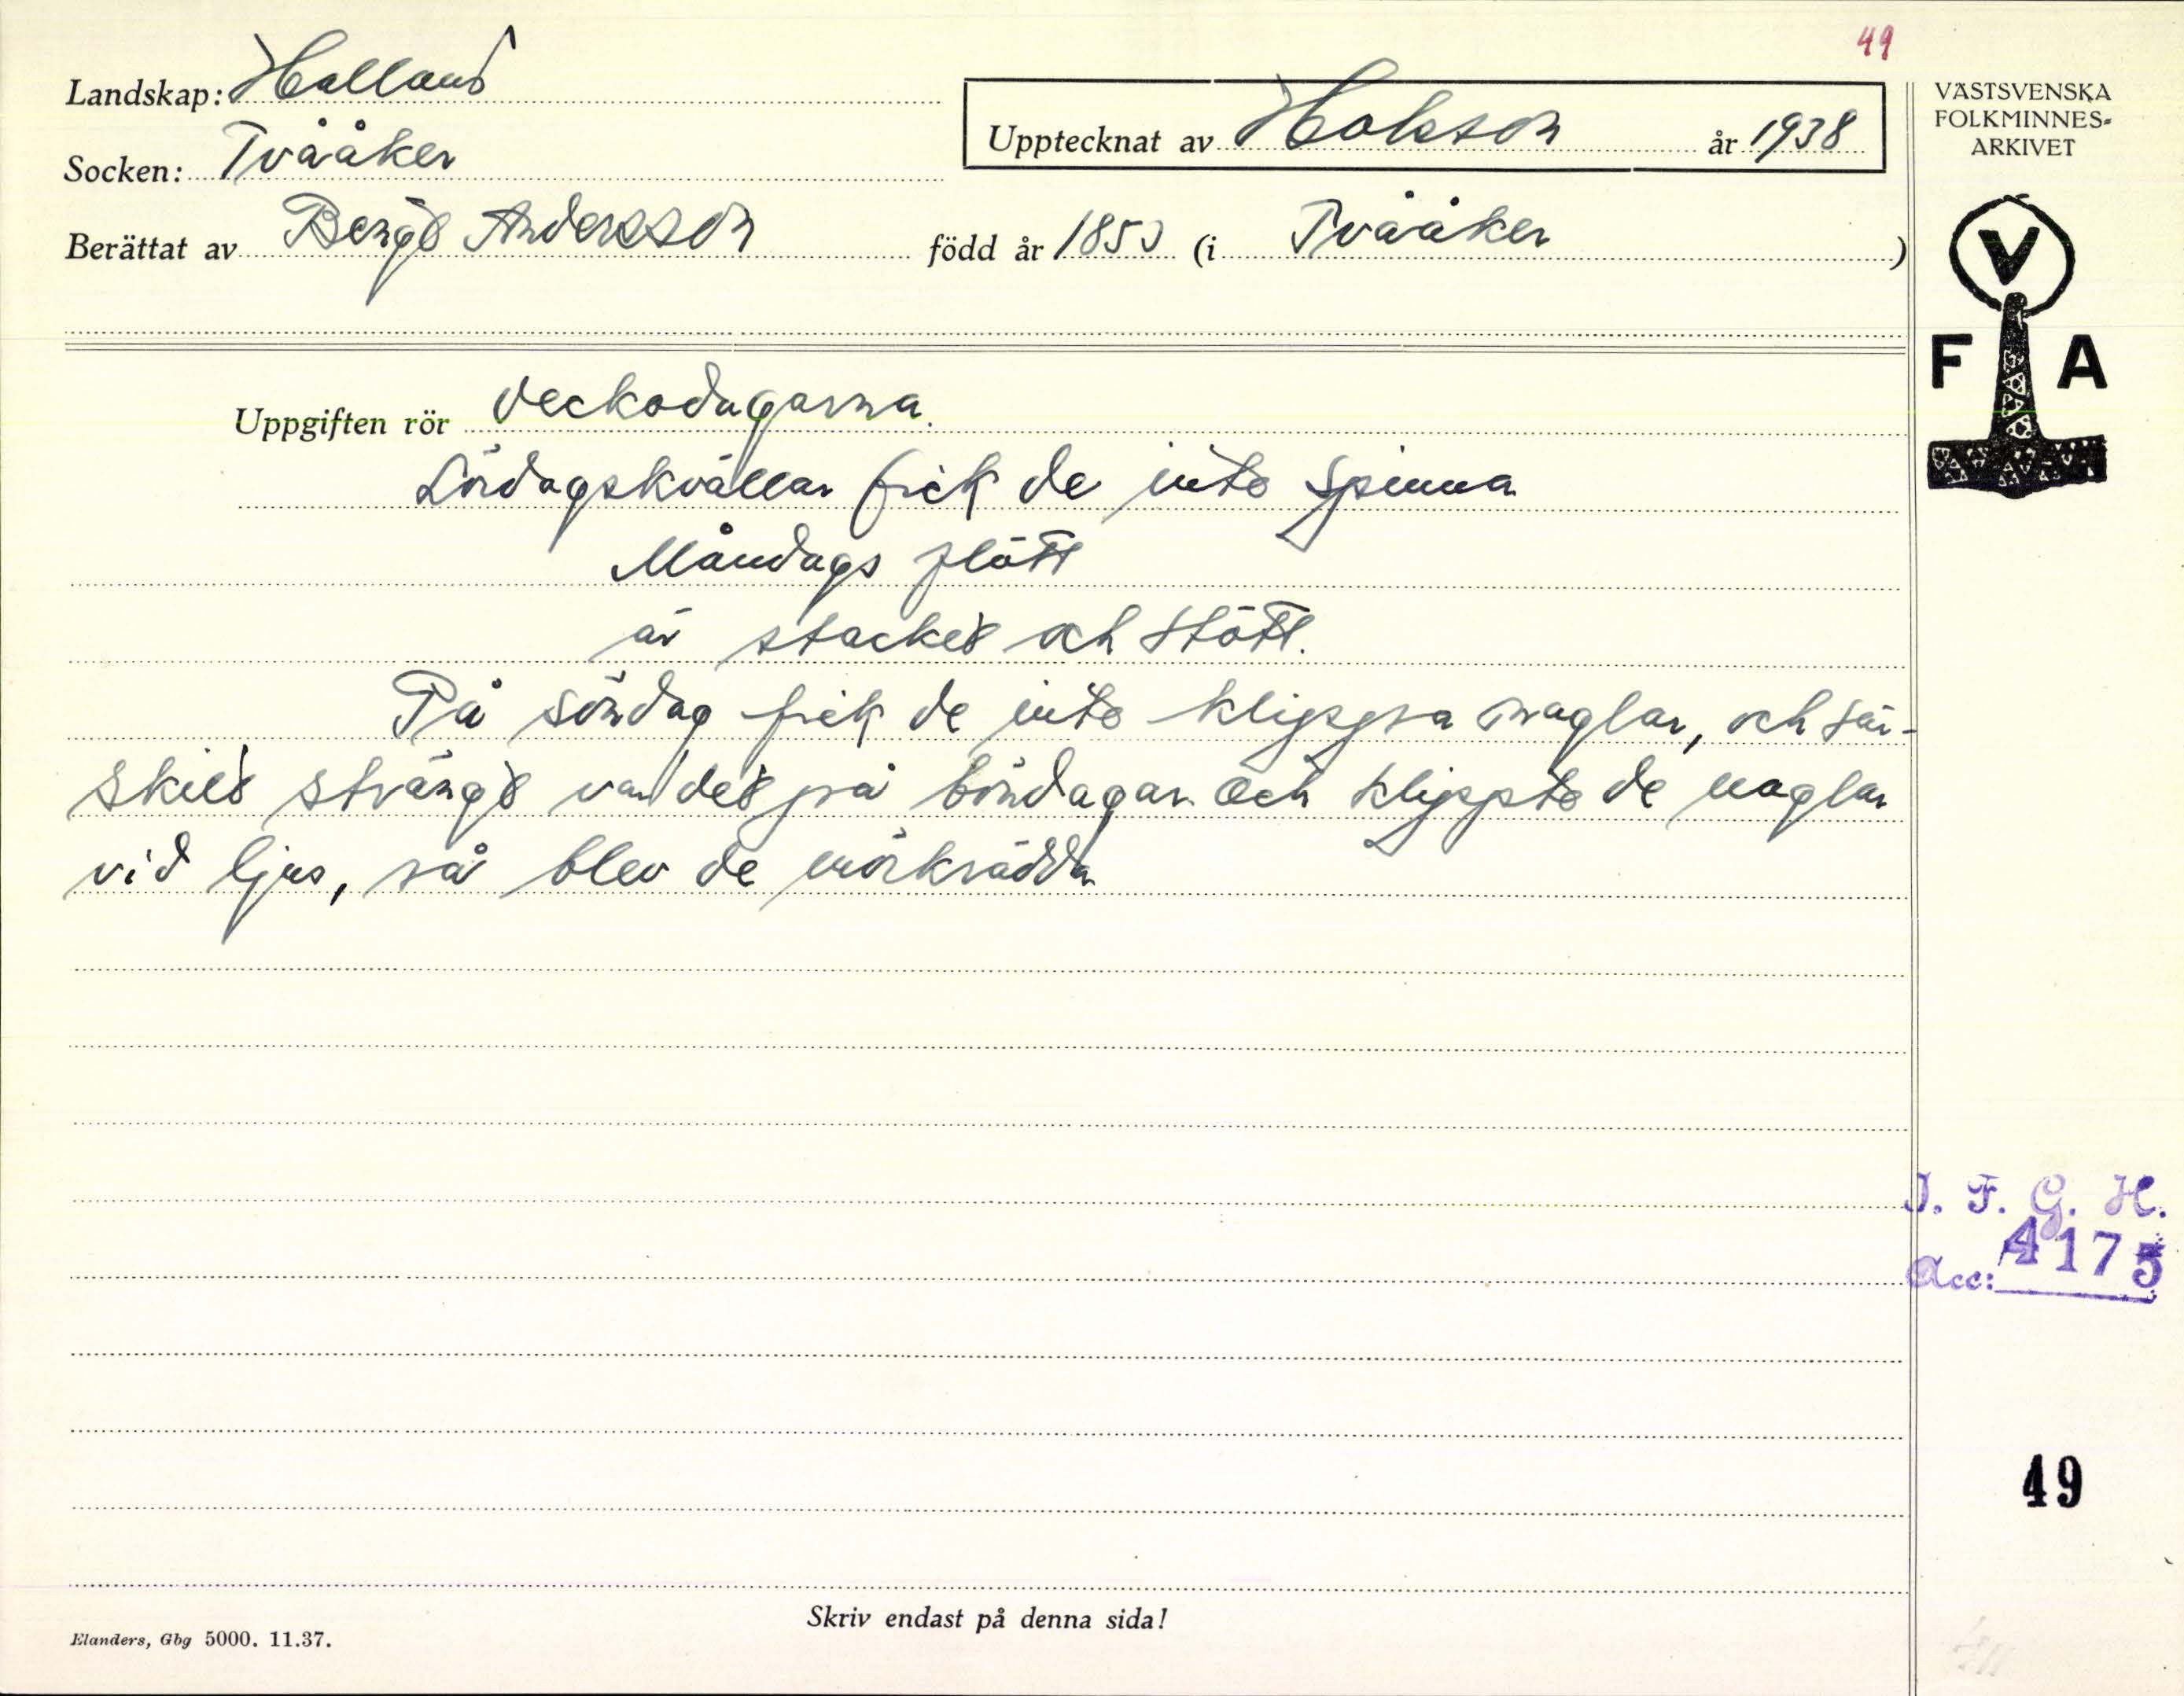 49
Landskap: Halland
Socken: Tvååker
Upptecknat av Hakson år 1938
Berättat av Bengt Andersson född år 1850 (i Tvååker)
VÄSTSVENSKA
FOLKMINNES-
ARKIVET
V
F A
Uppgiften rör Veckodagarna.
Lördagskvällar fick de inte spinna
Måndags flött
är stacket och stött.
På söndag fick de inte klippa naglar, och sär-
skilt strängt var det på böndagar. Och klippte de naglar
vid ljus, så blev de mörkrädda
I. F. G. H.
Acc: 4175
49
Skriv endast på denna sida!
Elanders, Gbg 5000. 11.37.